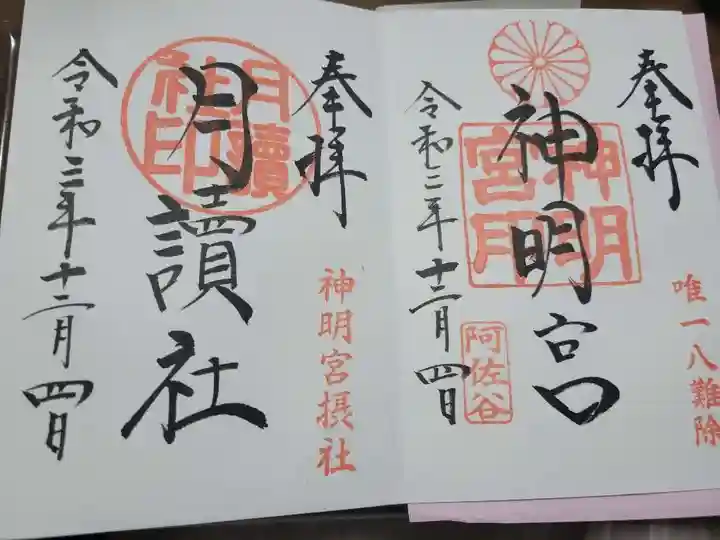 奉拝
唯一八難除
神明宮
神明
宮
阿佐谷
令和三年十二月四日
奉拝
神明宮摂社
月讀社
月讀
社印
令和三年十二月四日